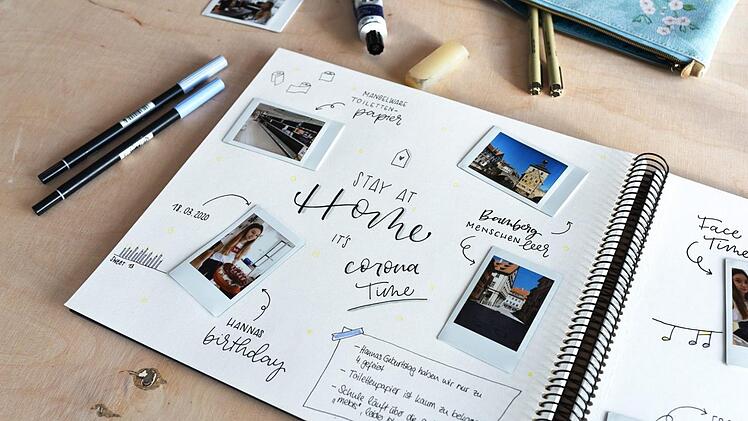 MANGELWARE
TOILETTEN-
papier
STAY AT
Home
IT'S
corona
Time
18.03.2020
SWEET 18
HANNAS
birthday
Bamberg
MENSCHENleer
- Hannas Geburtstag haben wir nur zu
4 gefeiert
- Toilettenpapier ist kaum zu
- Schule läuft über die
Face
Time